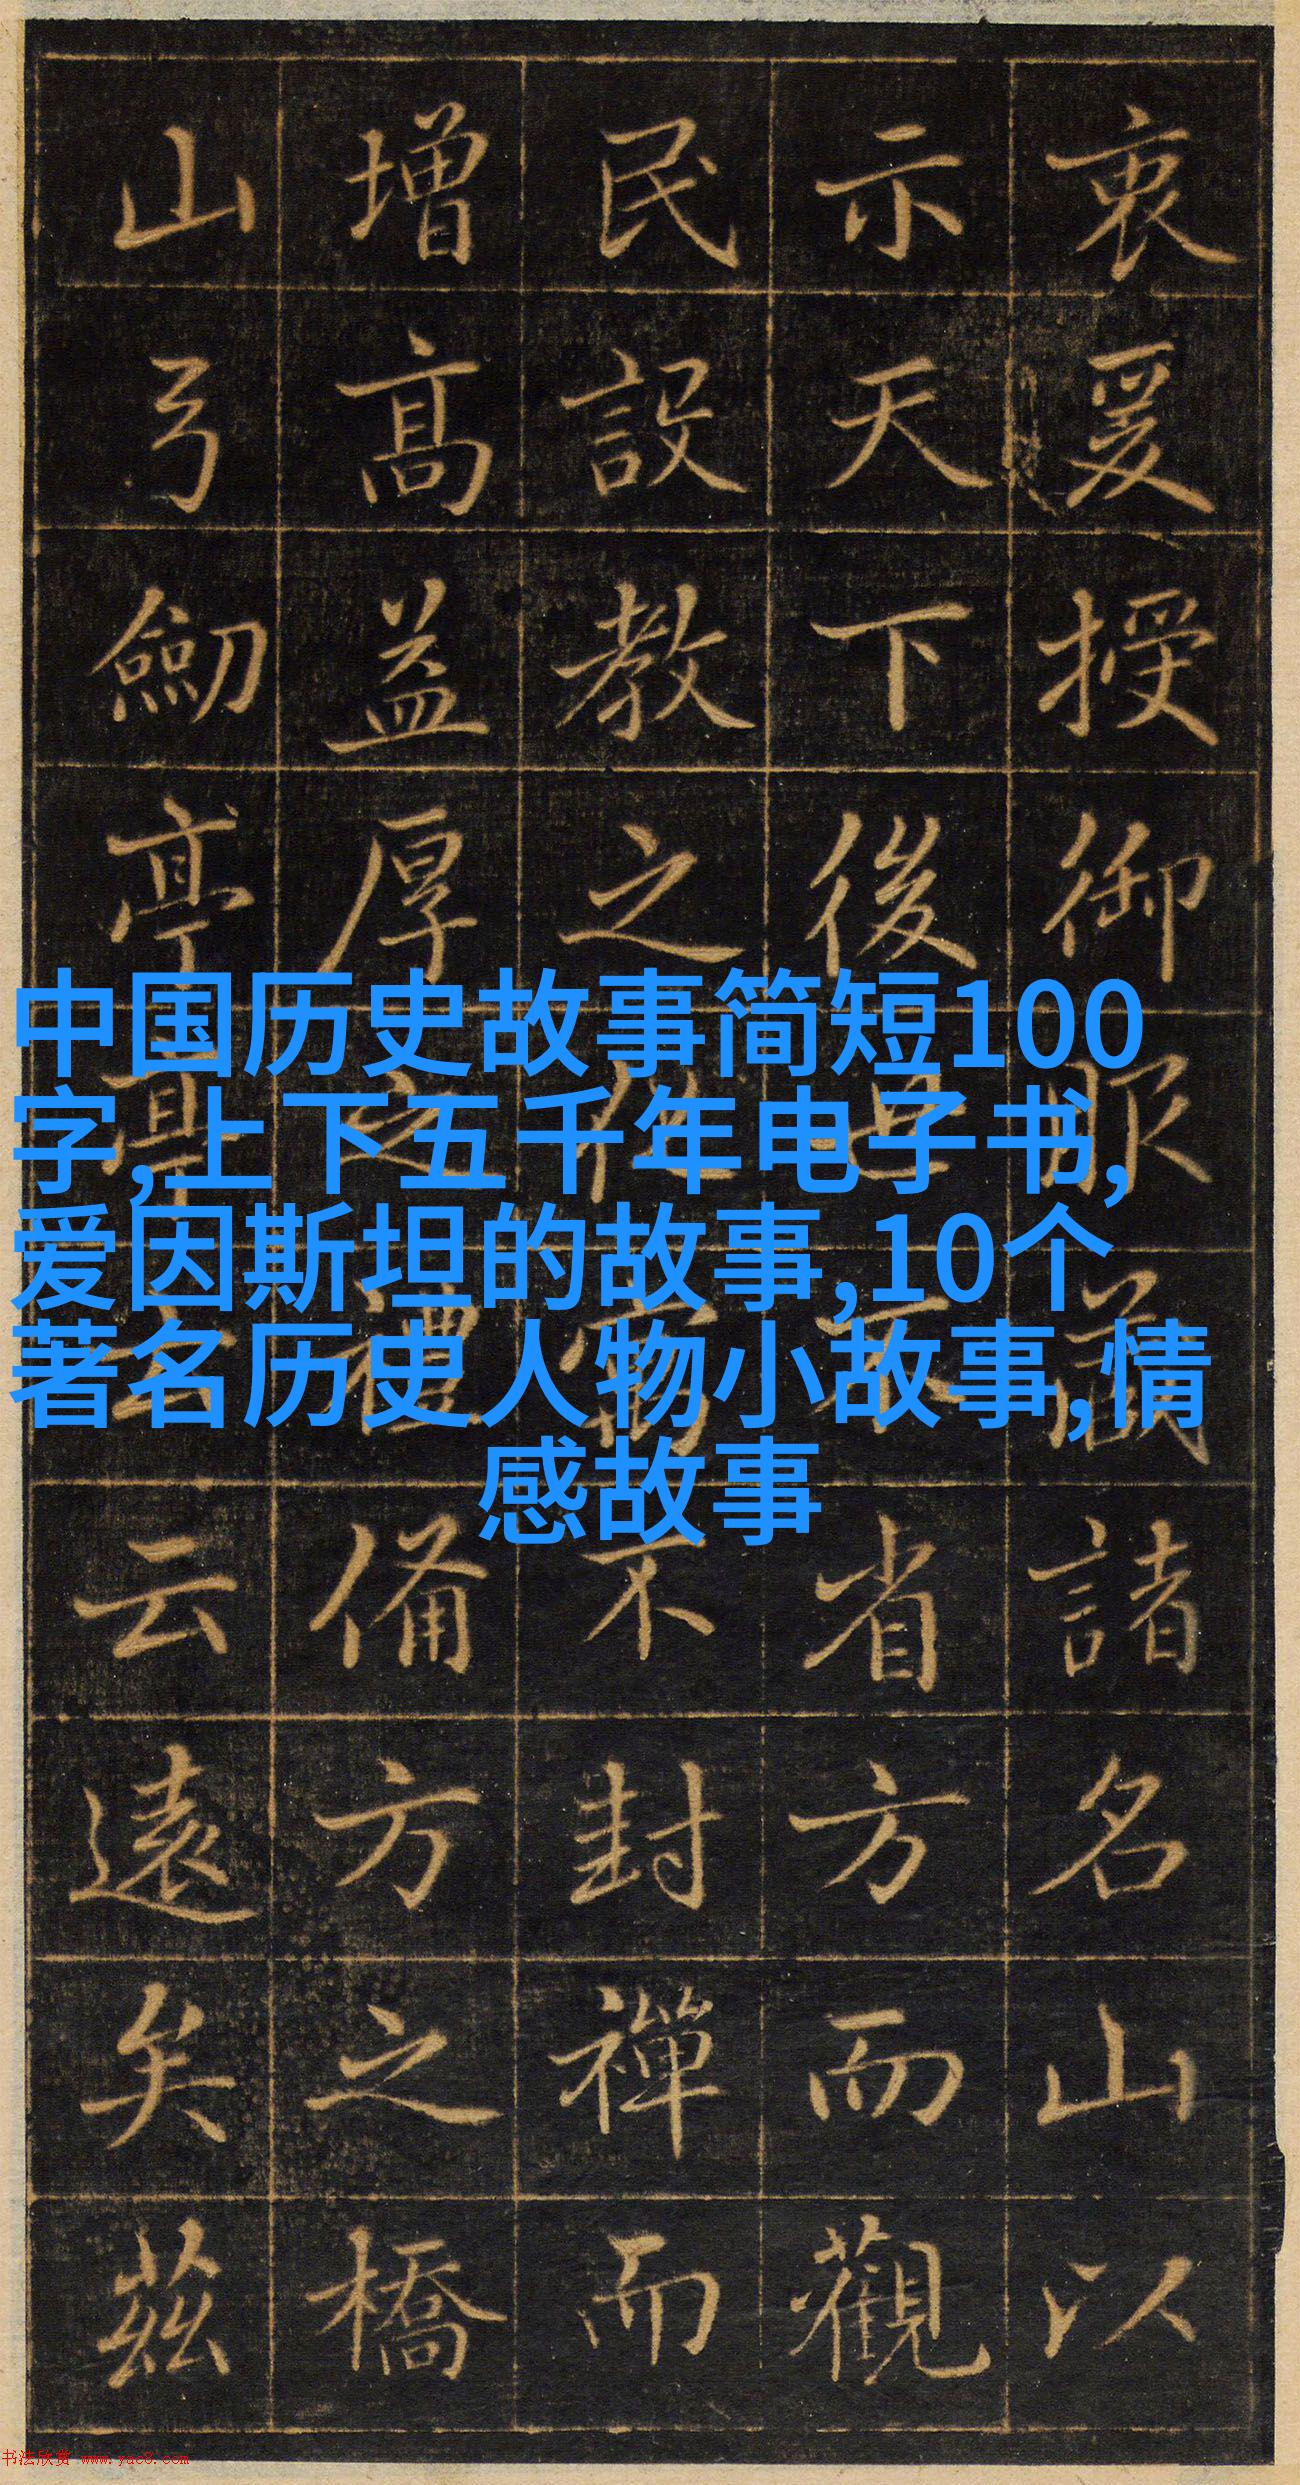 衷爰授御服藏諸名山以
示天下後世不省方而觀
民設教之不封禪而
增高益厚之禮備方之橋
山弓劒亭亭云云遠矣茲
中国历史故事简短100
字,上下五千年电子书,
爱因斯坦的故事,10个
著名历史人物小故事,情
感故事
书法欣赏 www.yac8.com